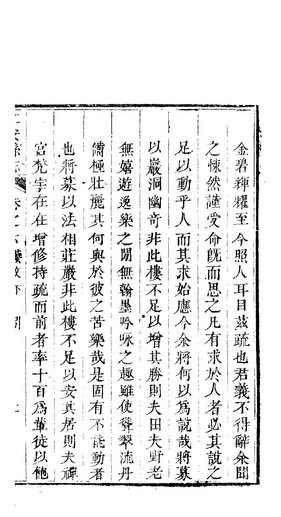 金碧輝耀至今照人耳目茲疏也君義不得辭余聞
之悚然謹受命旣而思之凡有求於人者必其說之
足以動乎人而其求始應今余將何以爲說哉將募
以巖洞幽奇非此樓不足以增其勝則夫田夫野老
無嬉遊逸樂之閒無翰墨吟咏之趣雖使聳翠流丹
備極壯麗其何與於彼之苦樂哉是固有不能動者
也將募以法相莊嚴非此樓不足以安其居則夫禪
宮梵宇在在增修持疏而前者率十百爲輩徒以佗
縣志 卷之六